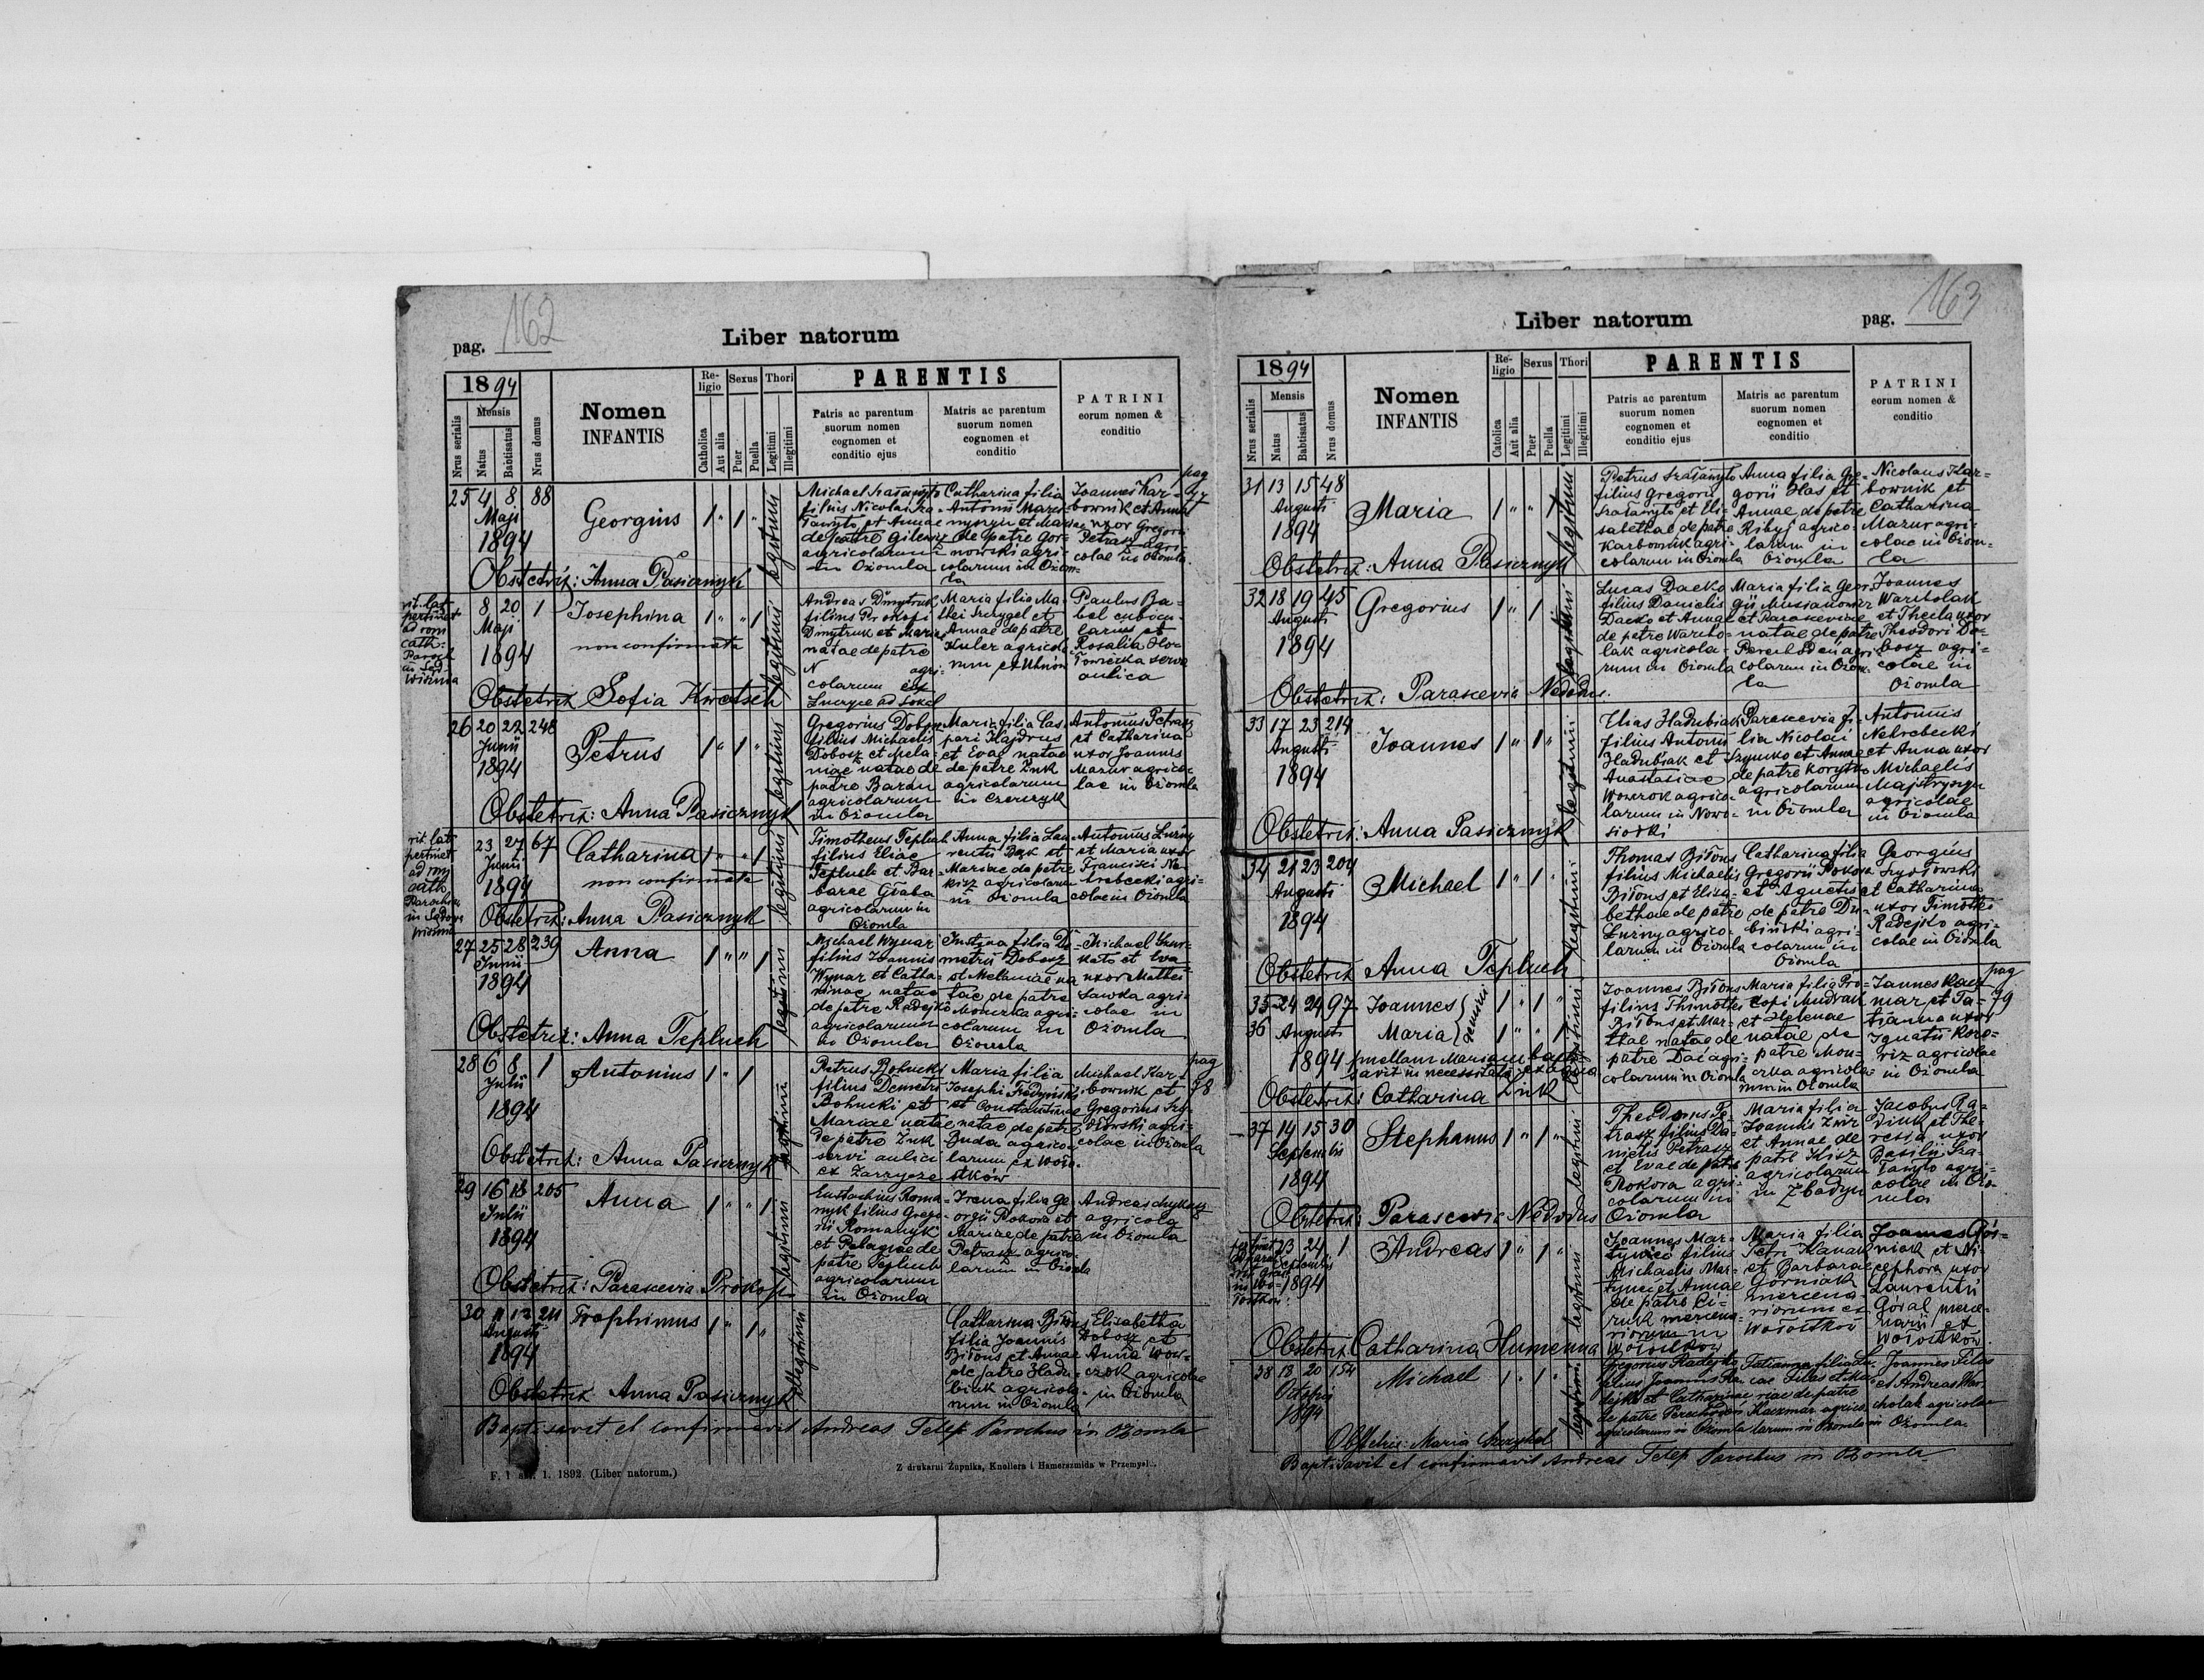 162
pag.
Liber natorum
1894
Mensis
Nrus serialis
Natus
Babtisatus
Nrus domus
Nomen
INFANTIS
Religio
Catholica
Aut alia
Sexus
Puer
Puella
Thori
Legitimi
Illegitimi
PARENTIS
Patris ac parentum
suorum nomen
cognomen et
conditio ejus
Matris ac parentum
suorum nomen
cognomen et
conditio
PATRINI
eorum nomen &
conditio
25 4 8 88
Maji
1894
Georgius
legitimi
filius Nicolai
agricolarum
in Ożomla
Catharina filia
de patre Gor-
nowski agri-
colarum in Ożom-
la
Joannes Kar-
bownik et Anna
uxor Gregorii
Petrasz agri-
colae in Ożomla
pag
77
Obstetrix: Anna Pasicznyk
rit. lat.
pertinet
ad rom
cath.
Paroch
8 20 1
Maji
1894
Josephina
non confirmata
legitimi
Andreas Dmytruk
filius Prokofi
Dmytruk et Mariae
natae de patre
N agri-
colarum ex
Maria filia Ma-
thei Szczygel et
Annae de patre
Kuler agricola-
rum
Paulus Ba-
bel cubicu-
larius et
Rosalia
serva
aulica
Obstetrix Sofia Kwetsch
26 20 22 248
Junii
1894
Petrus
legitimi
Gregorius Dobosz
filius Michaelis
Dobosz et Mela-
niae natae de
patre Baran
agricolarum
in Ożomla
Maria filia Cas-
pari Hajdrus
et Evae natae
de patre Żuk
agricolarum
in Czerczyk
Antonius Petrasz
et Catharina
uxor Joannis
Mazur agrico-
lae in Ożomla
Obstetrix: Anna Pasicznyk
rit. lat.
pertinet
ad rom
cath
Parochiam
23 27 67
Junii
1894
Catharina
non confirmata
legitimi
Timotheus Tepluch
filius Eliae
Tepluch et Bar-
barae
agricolarum in
Ożomla
Anna filia Lau-
rentii Bąk et
Mariae de patre
Kisz agricolarum
in Ożomla
Antonius Luźny
et Maria uxor
Francisci Ne-
hrebecki agri-
colae in Ożomla
Obstetrix: Anna Pasicznyk
27 25 28 239
Junii
1894
Anna
legitimi
Michael Wynar
filius Joannis
Wynar et Catha-
rinae natae
de patre Radejko
agricolarum
in Ożomla
Justina filia De-
metrii Dobosz
et Melaniae na-
tae de patre
Monczka agri-
colarum in
Ożomla
Michael
et Eva
uxor Mathei
Sawka agri-
colae in
Ożomla
Obstetrix: Anna Tepluch
28 6 8 1
Julii
1894
Antonius
legitimi
Petrus Bohucki
filius Demetri
Bohucki et
Mariae natae
de patre Żuk
servi aulici
ex Zarzycze
Maria filia
Josephi Fedyński
et Constantinae
natae de patre
Buda agrico-
larum ex Woło-
stków
Michael Kar-
bownik et
Gregorius Szy-
dłowski agri-
colae in Ożomla
pag
78
Obstetrix: Anna Pasicznyk
29 16 18 205
Julii
1894
Anna
legitimi
Eustachius Roma-
nyk filius Grego-
rii Romanyk
et Pelagiae de
patre Tepluch
agricolarum
in Ożomla
Irena filia Ge-
orgii Pokora et
Mariae de patre
Petrasz agrico-
larum in Ożomla
Andreas
agricola
in Ożomla
Obstetrix: Parascevia Prokop
30 11 12 211
Augusti
1894
Trophimus
illegitimi
Catharina Biłous
filia Joannis
Biłous et Annae
de patre Hadu-
biak agricola-
rum in Ożomla
Elisabetha
Dobosz et
Anna Wow-
czok agricolae
in Ożomla
Obstetrix Anna Pasicznyk
Baptisavit et confirmavit Andreas Telep Parochus in Ożomla
F. 1 1. 1892. (Liber natorum.)
Z drukarni Żupnika, Knollera i Hamerszmida w Przemyśl
163
Liber natorum
pag.
1894
Mensis
Nrus serialis
Natus
Babtisatus
Nrus domus
Nomen
INFANTIS
Religio
Catolica
Aut alia
Sexus
Puer
Puella
Thori
Legitimi
Illegitimi
PARENTIS
Patris ac parentum
suorum nomen
cognomen et
conditio ejus
Matris ac parentum
suorum nomen
cognomen et
conditio
PATRINI
eorum nomen &
conditio
31 13 15 48
Augusti
1894
Maria
legitimi
filius Gregorii
et Eli-
sabethae de patre
Karbownik agri-
colarum in Ożomla
Anna filia Gre-
gorii Has et
Annae de patre
Ribyj agrico-
larum in
Ożomla
Nicolaus Kar-
bownik et
Catharina
Mazur agri-
colae in Ożom-
la
Obstetrix: Anna Pasicznyk
32 18 19 45
Augusti
1894
Gregorius
legitimi
Lucas Dacko
filius Danielis
Dacko et Annae
de patre Warcho-
lak agricola-
rum in Ożomla
Maria filia Geor-
gii
et Parasceviae
natae de patre
agri-
colarum in Ożom-
la
Joannes
Warcholak
et Thecla uxor
Theodori Do-
bosz agri-
colae in
Ożomla
Obstetrix: Parascevia Nedodus.
33 17 23 214
Augusti
1894
Joannes
legitimi
Elias Hadubiak
filius Antonii
Hadubiak et
Anastasiae
Wowczok agrico-
larum in Nowo-
siołki
Parascevia fi-
lia Nicolai
Szymko et Annae
de patre Korytko
agricolarum
in Ożomla
Antonius
Nehrebecki
et Anna uxor
Michaelis
Majstryszyn
agricolae
in Ożomla
Obstetrix: Anna Pasicznyk
34 21 23 204
Augusti
1894
Michael
legitimi
Thomas Biłous
filius Michaelis
Biłous et Elisa-
bethae de patre
Luźny agrico-
larum in Ożomla
Catharina filia
Gregorii Pokora
et Agnetis
de patre Du-
biński agri-
colarum in
Ożomla
Georgius
Szydłowski
et Catharina
uxor Timothei
Radejko agri-
colae in Ożomla
Obstetrix Anna Tepluch
35 24 24 97
36 Augusti
1894
Joannes
Maria
gemini
legitimi
puellam Mariam bapti-
savit in necessitate ex aqua
Joannes Biłous
filius Thimothei
Biłous et Mar-
thae natae de
patre Dac agri-
colarum in Ożomla
Maria filia Pro-
copi Mudrak
et Helenae
natae de
patre Mon-
czka agricola-
rum in Ożomla
Joannes Kacz-
mar et Ta-
tianna uxor
Ignatii Koro-
riz agricolae
in Ożomla
pag
79
Obstetrix: Catharina Żuk
37 14 15 30
Septembris
1894
Stephanus
legitimi
Theodorus Pe-
trasz filius Da-
nielis Petrasz
et Evae de patre
Pokora agri-
colarum in
Ożomla
Maria filia
Joannis Żwir
et Annae de
patre Kisz
agricolarum
in Zbadyn
Jacobus Ra-
et The-
resia uxor
Basilii
agri-
colae in Ożo-
mla
Obstetrix: Parascevia Nedodus
23 24 1
Septembris
1894
Andreas
legitimi
Joannes Mar-
tyniec filius
Michaelis Mar-
tyniec et Annae
de patre Ci-
ruk mercena-
riorum in
Wołostków
Maria filia
Petri Hanak
et Barbarae
Górniak
mercena-
riorum ex
Wołostków
Joannes Gór-
niak et Ni-
cephora uxor
Laurentii
Góral merce-
narii ex
Wołostków
Obstetrix Catharina Humenna
38 13 20 154
Octobris
1894
Michael
legitimi
Gregorius Radejko
filius Joannis Ra-
dejko et Catharinae
de patre
agricolarum in Ożomla
Tatianna filia Lu-
cae Filas et Ma-
riae de patre
Kaczmar agrico-
larum in Ożomla
Joannes Filas
et Andreas War-
cholak agricolae
in Ożomla.
Obstetrix: Maria Szczyhel
Baptisavit et confirmavit Andreas Telep Parochus in Ożomla